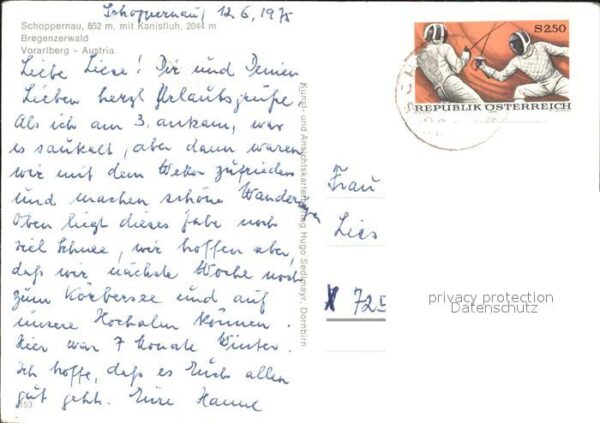 Schoppernau, 12.6.1975
Schoppernau, 852 m, mit Kanisfluh, 2044 m
Bregenzerwald
Vorarlberg - Austria
Liebe Liese! Dir und Deinen
Lieben herzl. Urlaubsgrüße.
Als ich am 3. ankam, war
es saukalt, aber dann waren
wir mit dem Wetter zufrieden
und machen schöne Wanderungen
Oben liegt dieses Jahr noch
viel Schnee, wir hoffen aber,
daß wir nächste Woche noch
zum Körbersee und auf
unsere Hochalm können.
Hier war 7 Monate Winter.
Ich hoffe, daß es Euch allen
gut geht. Eure Hanne
153
Kunst- und Ansichtskartenverlag Hugo Sedlmayr, Dornbirn
S 2.50
REPUBLIK ÖSTERREICH
Frau
Lies
725
privacy protection
Datenschutz